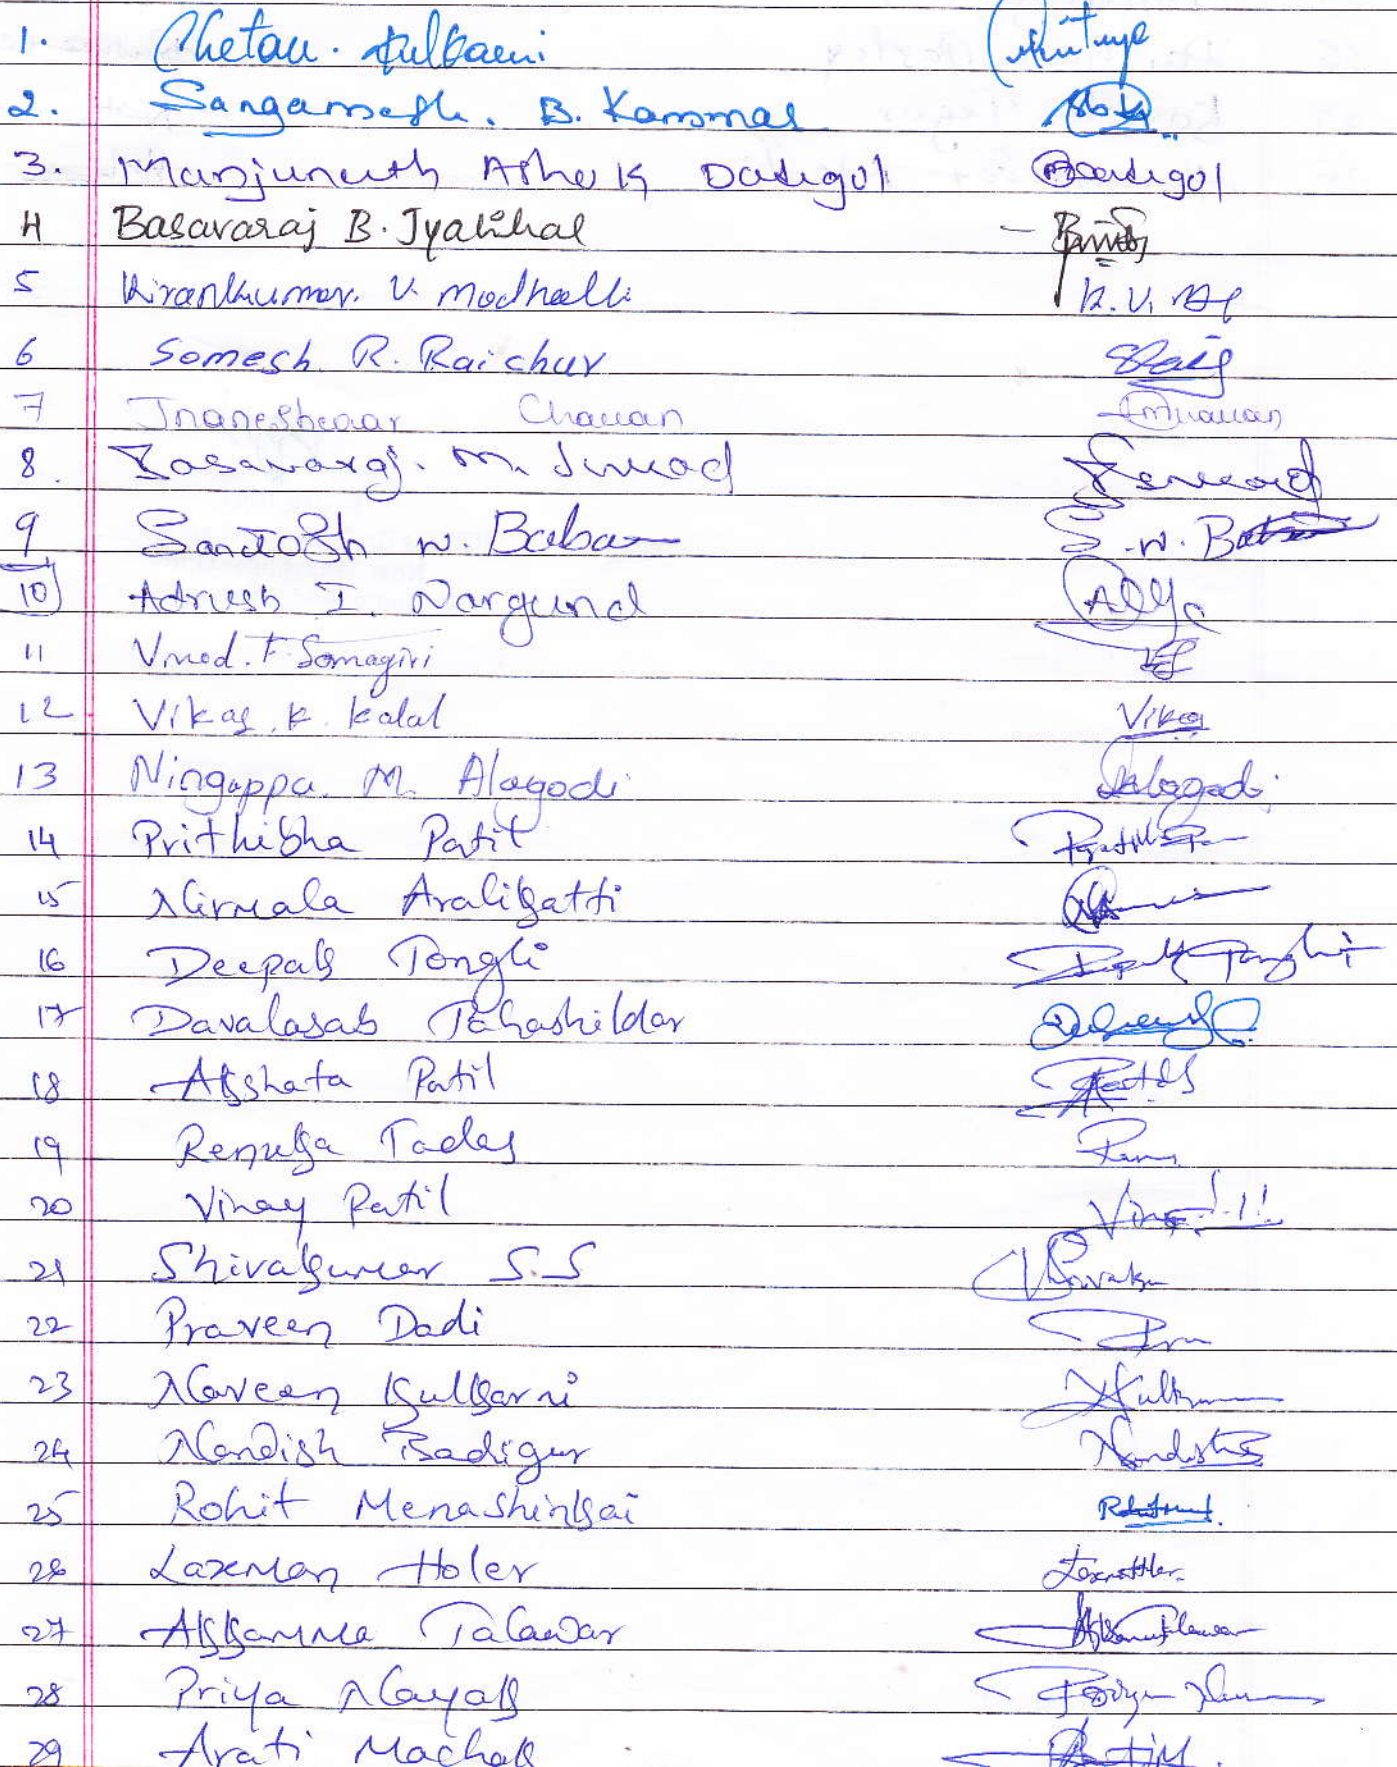 1. Chetan. Kulkarni
2. Sangamesh. B. Kammar
3. Manjunath Ashok Dodigol Dodigol
4 Basavaraj B. Jyalihal
5 Kirankumar. V. Madhalli K.V.
6 Somesh R. Raichur
7 Jnaneshwar Chavan
8. Basavaraj. M.
9 Santosh N. Babar S.N.
10 Adrush I. Nargund
11 Vinod. F. Somagiri
12 Vikas. K. Kalal Vikas
13 Ningappa. M. Alagodi Alagodi
14 Prithibha Patil
15 Nirmala Aralikatti
16 Deepak Tongli Deepak Tongli
17 Davalasab Tahashildar
18 Akshata Patil
19 Renuka Tadas
20 Vinay Patil
21 Shivakumar S.S
22 Praveen Dodi
23 Naveen Kulkarni
24 Nandish Badiger
25 Rohit Menashinkai
26 Laxman Holer
27 Akkamma Talawar
28 Priya Nayak
29 Arati Machak